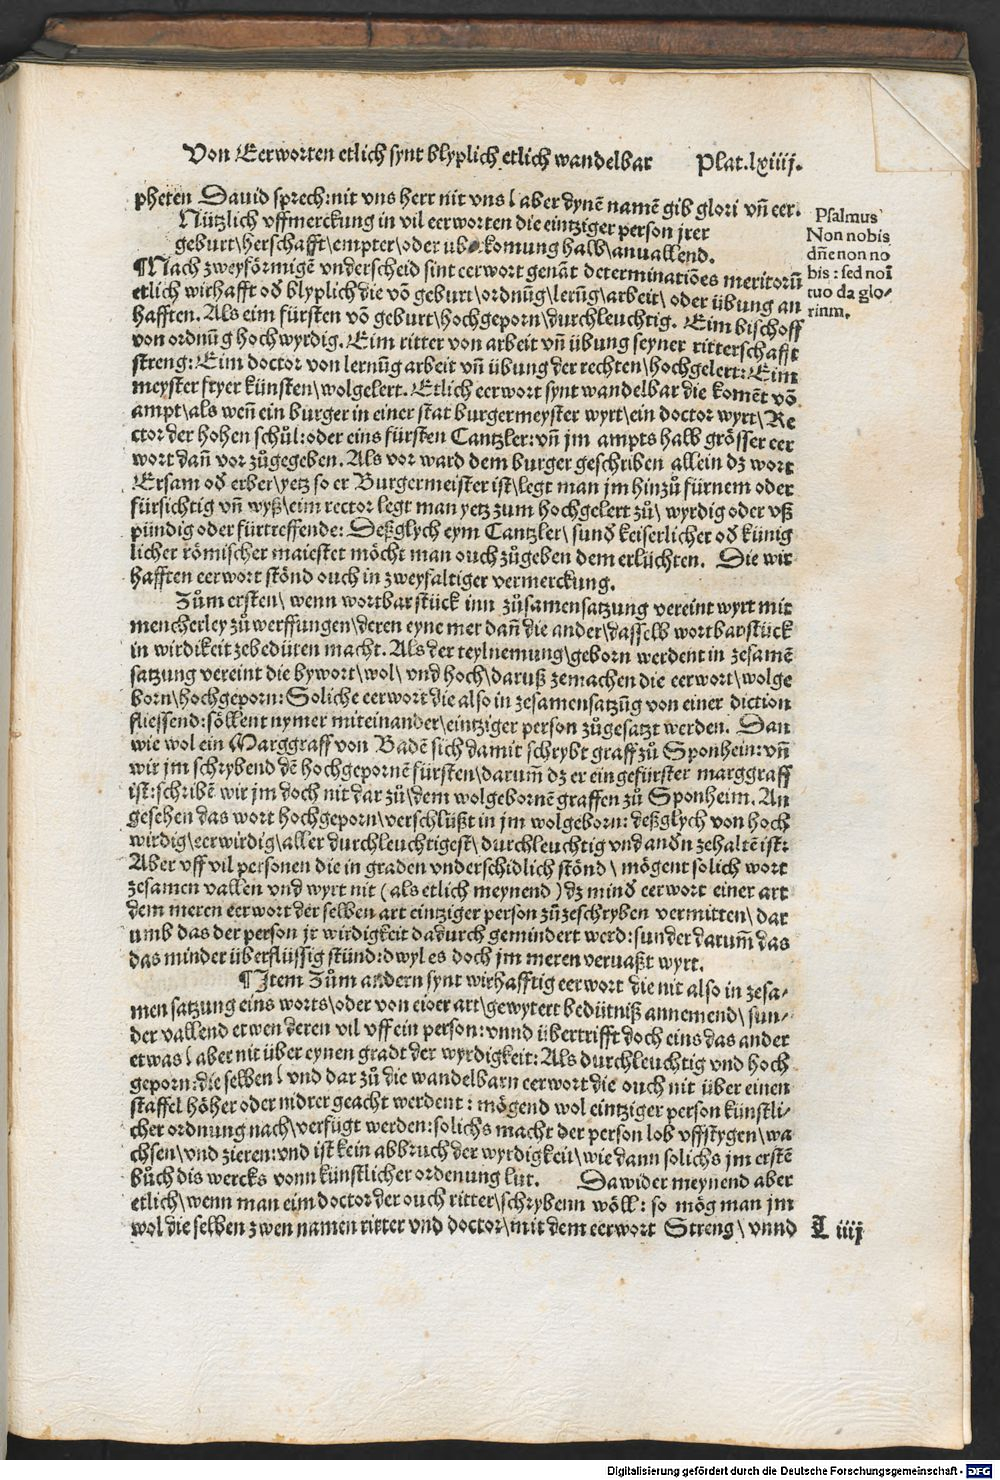 Von Eerworten etlich synt blyplich etlich wandelbar Plat.lxiiij.
pheten Dauid sprech:nit vns herr nit vns/ aber dynē namē gib glori vñ eer.
Nützlich vffmerckung in vil eerworten die eintziger person jrer
geburt\herschafft\empter\oder komung halb\anuallend.
¶Nach zweyförmigē vnderscheid sint eerwort genāt determinatiōes meritorū
etlich wirhafft od̄ blyplich die vō geburt\ordnūg\lerūg\arbeit\ oder übung an
hafften. Als eim fürsten vō geburt\hochgeporn\durchleuchtig. Eim bischoff
von ordnūg hochwyrdig. Eim ritter von arbeit vñ übung seyner ritterschafft
streng: Eim doctor von lernūg arbeit vñ übung der rechten\hochgelert: Eim
meyster fryer künsten\wolgelert. Etlich eerwort synt wandelbar die komēt vō
ampt\als weñ ein burger in einer stat burgermeyster wyrt\ein doctor wyrt\Re
ctor der hohen schůl:oder eins fürsten Cantzler:vñ jm ampts halb grösser eer
wort dañ vor zůgegeben. Als vor ward dem burger geschriben allein dz wort
Ersam od̄ erber\yetz so er Burgermeister ist\legt man jm hinzů fürnem oder
fürsichtig vñ wyß\eim rector legt man yetz zum hochgelert zů\ wyrdig oder vß
pündig oder fürtreffende: Deßglych eym Cantzler\ sund̄ keiserlicher od̄ künig
licher römischer maiestet möcht man ouch zůgeben dem erlüchten. Die wir
hafften eerwort stönd ouch in zweyfaltiger vermerckung.
Zům ersten\ wenn wortbarstück inn zůsamensatzung vereint wyrt mit
mencherley zů werffungen\deren eyne mer dañ die ander\dasselb wortbarstück
in wirdikeit zebedüten macht. Als der teylnemung\geborn werdent in zesamē
satzung vereint die bywort\wol\ vnd hoch\daruß zemachen die eerwort\wolge
born\hochgeporn: Soliche eerwort die also in zesamensatzūg von einer diction
fliessend:söllent nymer miteinander\eintziger person zůgesatzt werden. Dan
wie wol ein Marggraff von Badē sich damit schrybt graff zů Sponhein:vñ
wir jm schrybend dē hochgepornē fürsten\darum̄ dz er ein gefürster marggraff
ist:schribē wir jm doch nit dar zů\dem wolgebornē graffen zů Sponheim. An
gesehen das wort hochgeporn\verschlüßt in jm wolgeborn: deßglych von hoch
wirdig\eerwirdig\aller durchleuchtigest\ durchleuchtig vnd and̄n zehaltē ist:
Aber vff vil personen die in graden vnderschidlich stönd\ mögent solich wort
zesamen vallen vnd wyrt nit (als etlich meynend) dz mind̄ eerwort einer art
dem meren eerwort der selben art eintziger person zůzeschryben vermitten\ dar
umb das der person jr wirdigkeit dadurch gemindert werd:sunder darum̄ das
das minder überflüssig stünd:dwyl es doch jm meren veruaßt wyrt.
¶Item Zům andern synt wirhafftig eerwort die nit also in zesa⸗
men satzung eins worts\oder von eicer art\gewytert bedütniß annemend\ sun⸗
der vallend etwen deren vil vff ein person:vnnd übertrifft doch eins das ander
etwas/ aber nit über eynen gradt der wyrdigkeit: Als durchleuchtig vnd hoch
geporn:die selben/ vnd dar zů die wandelbarn eerwort die ouch nit über einen
staffel höher oder nidrer geacht werdent: mögend wol eintziger person künstli⸗
cher ordnung nach\verfügt werden:solichs macht der person lob vffstygen\wa
chsen\vnd zieren:vnd ist kein abbruch der wyrdigkeit\wie dann solichs jm erstē
bůch dis wercks vonn künstlicher ordenung lut. Dawider meynend aber
etlich\wenn man eim doctor der ouch ritter\schrybenn wöll: so mög man jm
wol die selben zwen namen ritter vnd doctor\mit dem eerwort Streng\ vnnd
L iiij
Psalmus
Non nobis
dn̄e non no
bis: sed noī
tuo da glo⸗
riam.
Digitalisierung gefördert durch die Deutsche Forschungsgemeinschaft - DFG